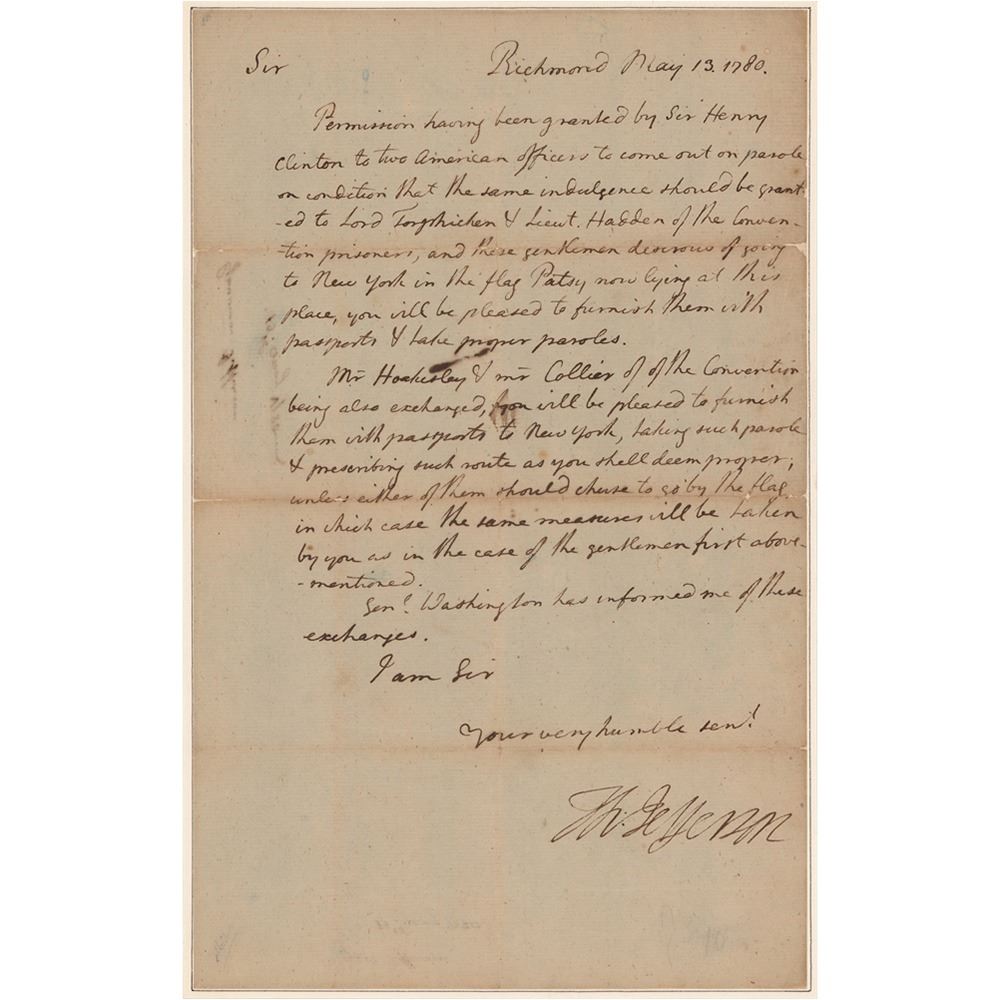 Sir Richmond May 13. 1780.
Permission having been granted by Sir Henry
Clinton to two American officers to come out on parole
on condition that the same indulgence should be grant
-ed to Lord Torphichen & Lieut. Hadden of the Conven-
-tion prisoners, and these gentlemen desirous of going
to New York in the flag Patsy now lying at this
place, you will be pleased to furnish them with
passports & take proper paroles.
Mr Hoakesley & mr Collier of of the Convention
being also exchanged, you will be pleased to furnish
them with passports to New York, taking such parole
& prescribing such route as you shall deem proper;
unless either of them should chuse to go by the flag
in which case the same measures will be taken
by you as in the case of the gentlemen first above-
-mentioned.
Genl. Washington has informed me of these
exchanges.
I am Sir
Your very humble servt.
Th: Jefferson